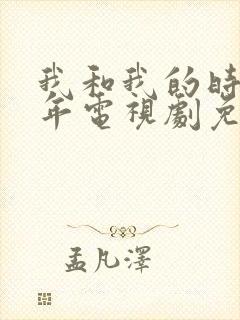 我和我的時
年電視劇免
孟凡澤